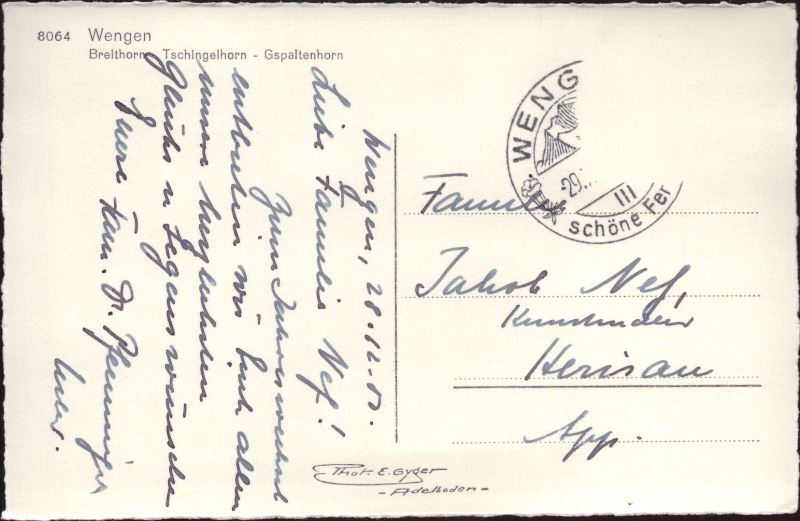 8064 Wengen
Breithorn - Tschingelhorn - Gspaltenhorn
Wengen, 28.12.50.
Liebe Familie Nef!
Zum Jahreswechsel
entbieten wir Euch allen
unsere herzlichsten
Glücks u Segenswünsche
Euere Fam. Dr. Pfenninger
WENG
29.
III
schöne Fer
Familie
Jakob Nef,
Kunstmaler
Herisau
App.
Phot. E. Gyger
- Adelboden -